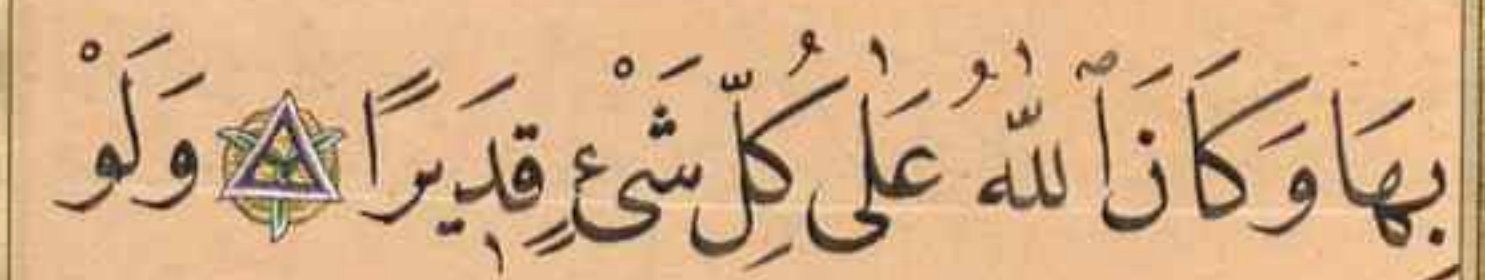 بِهَا وَكَانَ ٱللّٰهُ عَلٰى كُلِّ شَىْءٍ قَدِيرًا وَلَوْ